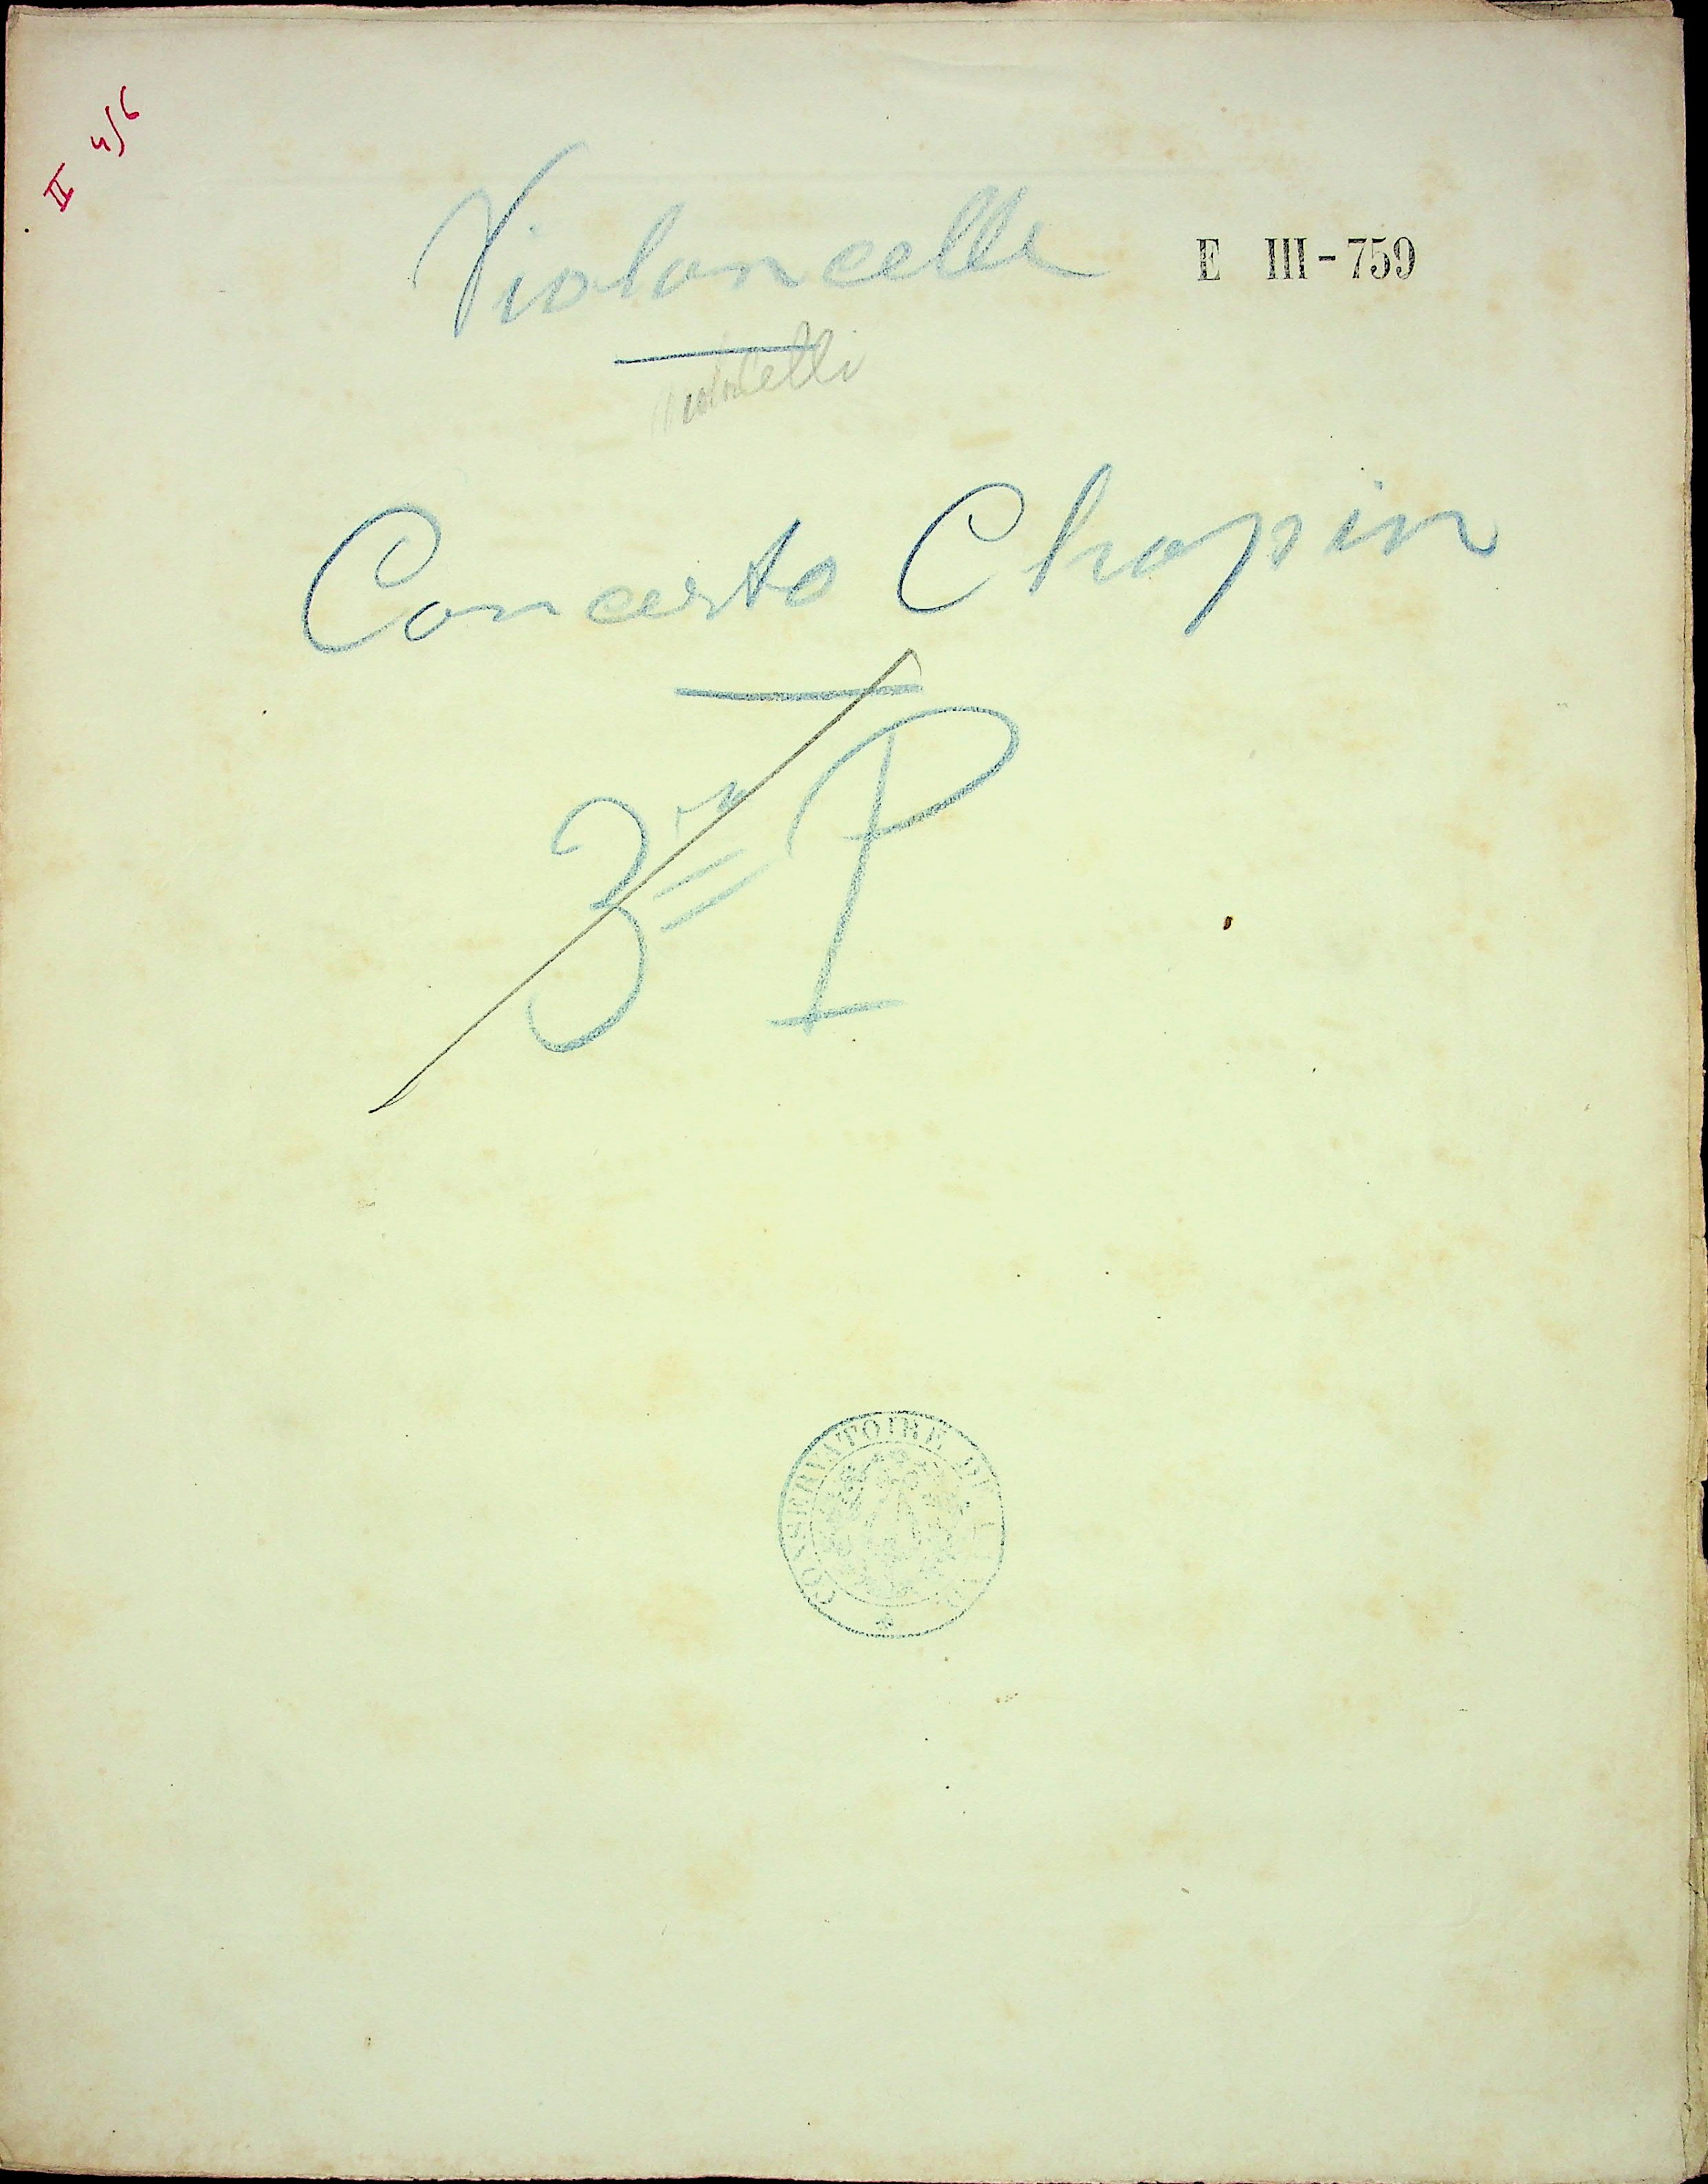 II 4/6
Violoncelle
E III-759
Concerto Chopin
3 P
CONSERVATOIRE DE